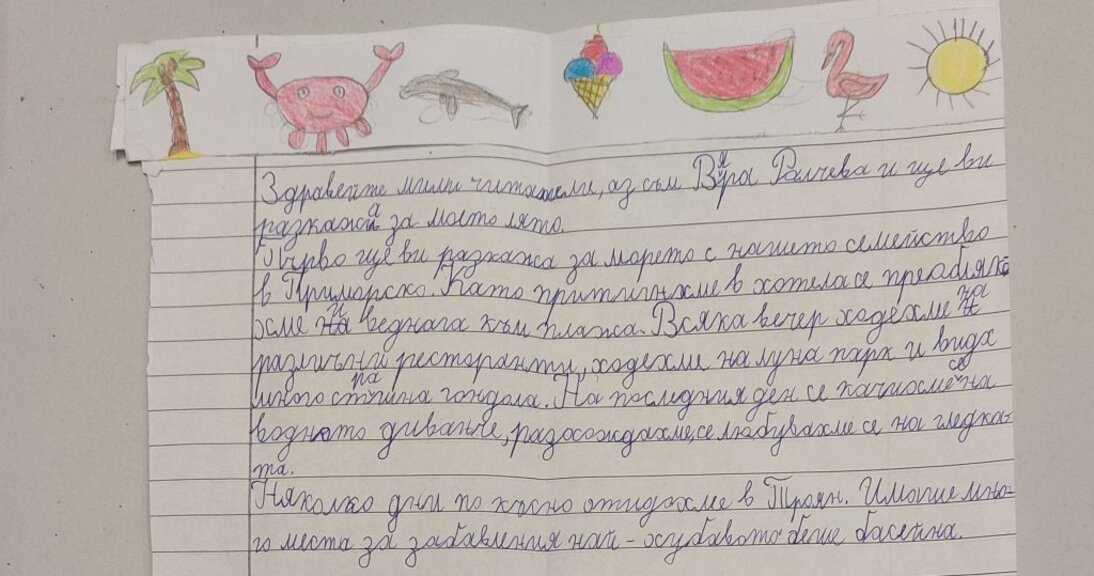 Здравейте мили читатели, аз съм Вяра Ралчева и ще ви
разкажа за моето лято.
Първо ще ви разкажа за морето с нашето семейство
в Приморско. Като пристигнахме в хотела се преобляко
хме и веднага към плажа. Всяка вечер ходехме на
различни ресторанти, ходехме на луна парк и видх
много гондола. На последния ден се качиохме на
водното диванче, разсохождахме, се любувахме се на гледка-
та.
Няколко дни по късно отидохме в Троян. Имаше мно-
го места за забавления най-хубавото беше басейна.